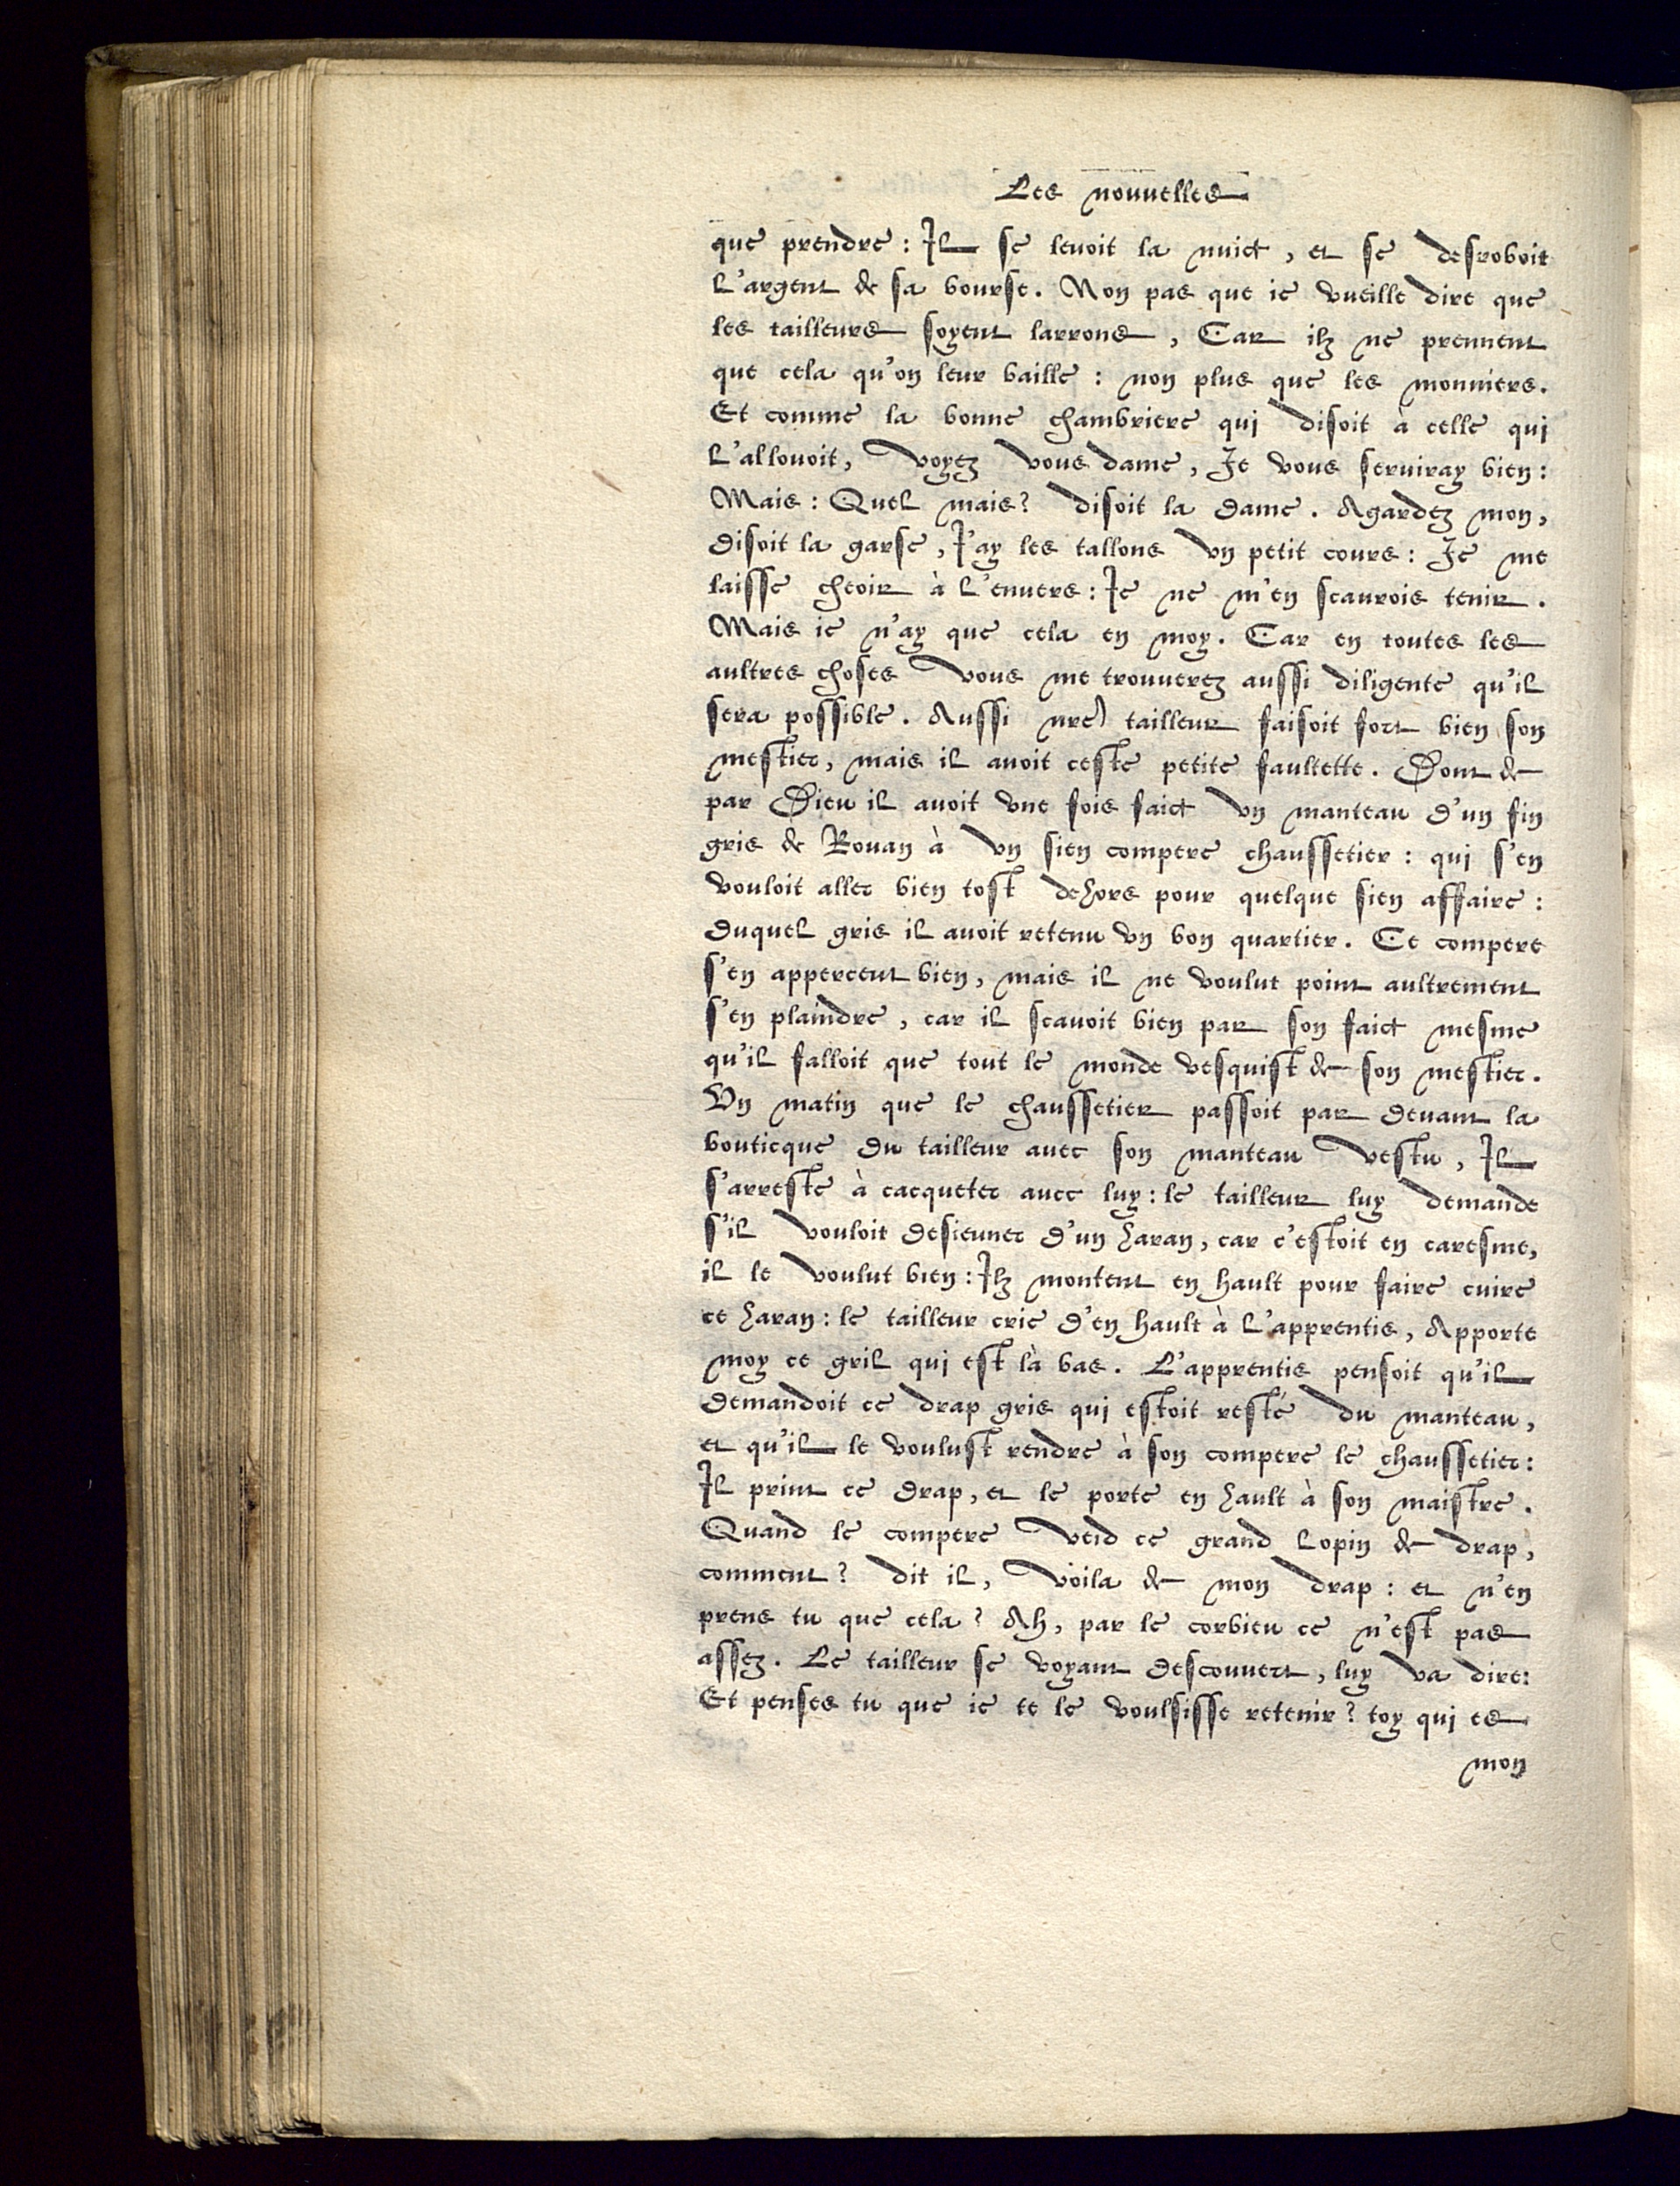 Les nouuelles
que prendre : Il se leuoit la nuict , et se desroboit
l'argent de sa bourse. Non pas que ie vueille dire que
les tailleurs soyent larrons , Car ilz ne prennent
que cela qu'on leur baille : non plus que les monniers.
Et comme la bonne chambriere qui disoit à celle qui
l'allouoit, voyez vous dame, Je vous seruiray bien :
Mais : Quel mais ? disoit la dame . Agardez mon,
disoit la garse , J'ay les tallons vn petit cours : Je me
laisse cheoir à l'enuers : Je ne m'en scaurois tenir .
Mais ie n'ay que cela en moy. Car en toutes les
aultres choses vous me trouuerez aussi diligente qu'il
sera possible. Aussi nre tailleur faisoit fort bien son
mestier, mais il auoit ceste petite faultette. Dont de
par Dieu il auoit vne fois faict vn manteau d'un fin
gris de Rouan à vn sien compere chaussetier : qui s'en
vouloit aller bien tost dehors pour quelque sien affaire :
duquel gris il auoit retenu vn bon quartier. Ce compere
s'en apperceut bien, mais il ne voulut point aultrement
s'en plaindre , car il scauoit bien par son faict mesme
qu'il falloit que tout le monde vesquist de son mestier.
Vn matin que le chaussetier passoit par deuant la
bouticque du tailleur auec son manteau vestu , Il
s'arreste à cacqueter auec luy : le tailleur luy demande
s'il vouloit desieuner d'un haran, car c'estoit en caresme,
il le voulut bien : Ilz montent en hault pour faire cuire
ce haran : le tailleur crie d'en hault à l'apprentis, Apporte
moy ce gril qui est là bas. L'apprentis pensoit qu'il
demandoit ce drap gris qui estoit resté du manteau,
et qu'il le voulust rendre à son compere le chaussetier :
Il print ce drap, et le porte en hault à son maistre.
Quand le compere veid ce grand lopin de drap,
comment ? dit il, voila de mon drap : et n'en
prens tu que cela ? Ah, par le corbieu ce n'est pas
assez. Le tailleur se voyant descouuert, luy va dire :
Et penses tu que ie te le voulsisse retenir ? toy qui es
mon